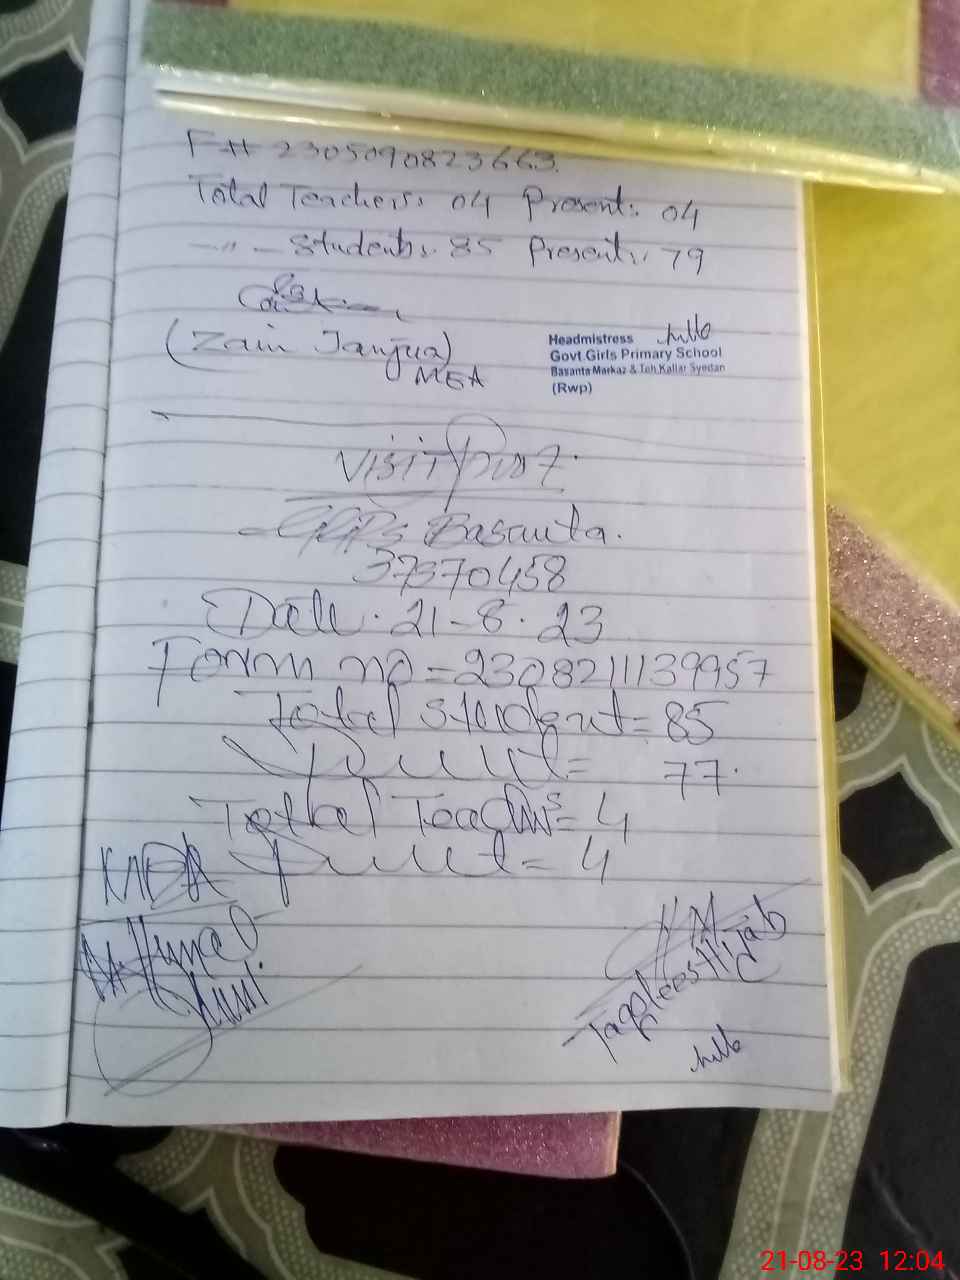 F# 2305090823663.
Total Teachers: 04 Present: 04
-"- Students: 85 Present: 79
(Zain Janjua)
MEA
Headmistress
Govt.Girls Primary School
Basanta Markaz & Teh.Kallar Syedan
(Rwp)
Visit
GGPS Basanta.
37370458
Date. 21-8-23
Form no = 2308211139957
Total Student = 85
Present = 77.
Total Teachers = 4
Present = 4
H M
21-08-23 12:04